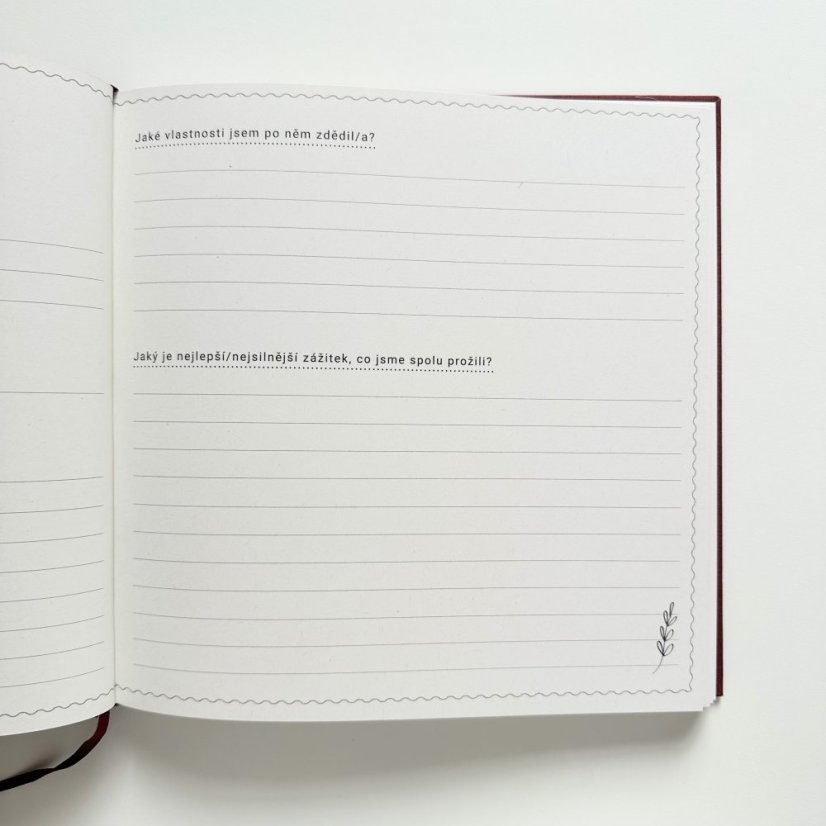 Jaké vlastnosti jsem po něm zdědil/a?
Jaký je nejlepší/nejsilnější zážitek, co jsme spolu prožili?